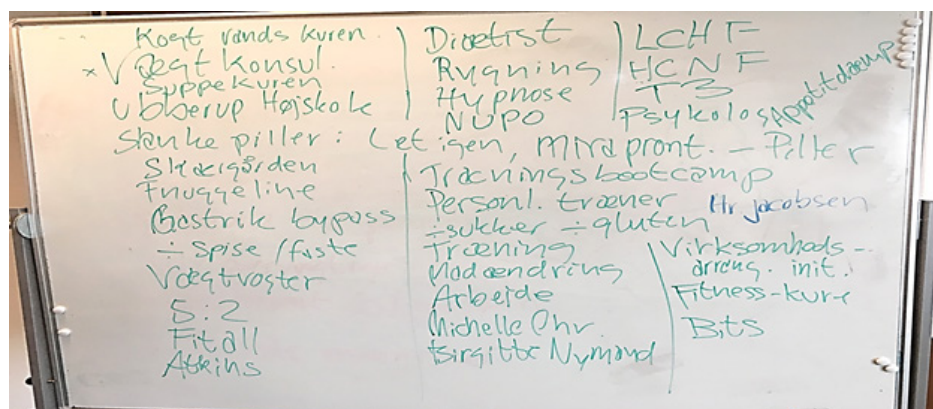 Kogt vands kuren
x Vægt konsul.
Suppekuren
Ubberup Højskole
Diætist
Rygning
Hypnose
NUPO
LCHF
HCNF
T3
Psykolog Appetitdæmp.
Slanke piller: Let igen, Mirapront. - Piller
Skærgården
Fnuggeline
Gastrik bypass
÷ Spise / faste
Vægtvogter
5:2
Fitall
Atkins
Træningsbootcamp
Personl. træner Hr Jacobsen
÷sukker ÷gluten
Træning
Madændring
Arbejde
Michelle Chr.
Birgitte Nymand
Virksomheds-
arrang. init.
Fitness-kure
Bits